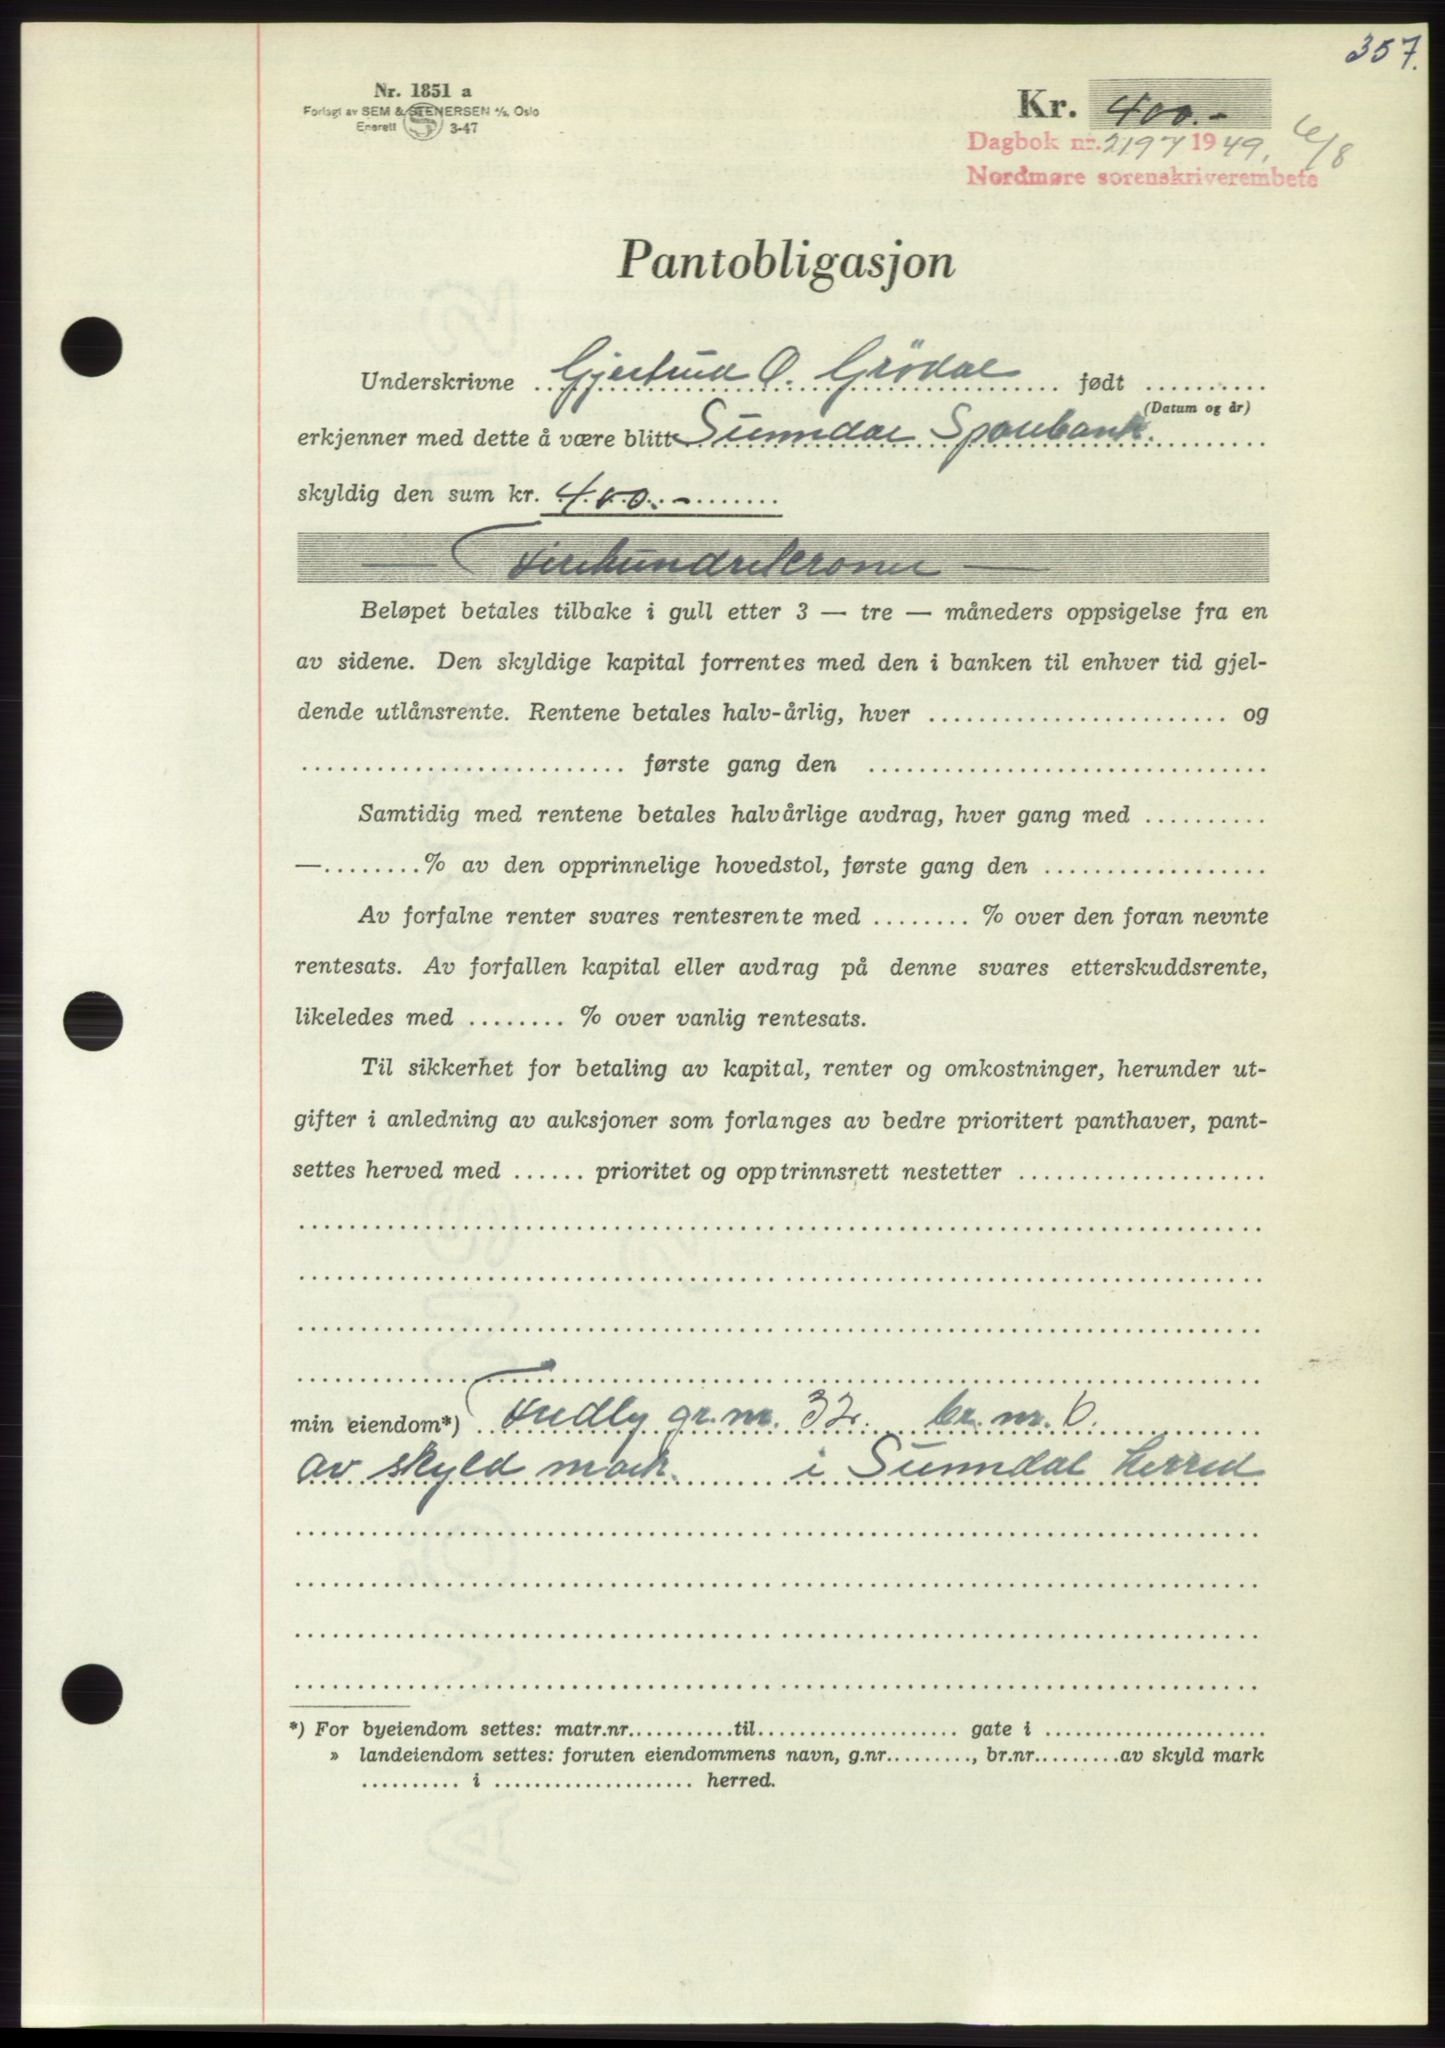 357.
Nr. 1851 a
Forlagt av SEM & STENERSEN A/S, Oslo
Enerett 3-47
Kr. 400.-
Dagbok nr. 2197 1949, 6/8
Nordmøre sorenskriverembete
Pantobligasjon
Underskrivne Gjertrud O. Grödal født ..........
(Datum og år)
erkjenner med dette å være blitt Sunndal Sparebank.
skyldig den sum kr. 400.-
— Firehundrekroner —
Beløpet betales tilbake i gull etter 3 — tre — måneders oppsigelse fra en
av sidene. Den skyldige kapital forrentes med den i banken til enhver tid gjel-
dende utlånsrente. Rentene betales halv-årlig, hver ........................ og
.......................... første gang den ................................
Samtidig med rentene betales halvårlige avdrag, hver gang med ..........
—........% av den opprinnelige hovedstol, første gang den ..................
Av forfalne renter svares rentesrente med ........ % over den foran nevnte
rentesats. Av forfallen kapital eller avdrag på denne svares etterskuddsrente,
likeledes med ........ % over vanlig rentesats.
Til sikkerhet for betaling av kapital, renter og omkostninger, herunder ut-
gifter i anledning av auksjoner som forlanges av bedre prioritert panthaver, pant-
settes herved med ...... prioritet og opptrinnsrett nestetter ....................
min eiendom*) Fredly gr. nr. 32. br. nr. 6.
av skyld mark. i Sunndal herred
*) For byeiendom settes: matr.nr...........til.................... gate i ......................
» landeiendom settes: foruten eiendommens navn, g.nr........., br.nr.........av skyld mark
.......... i .................... herred.